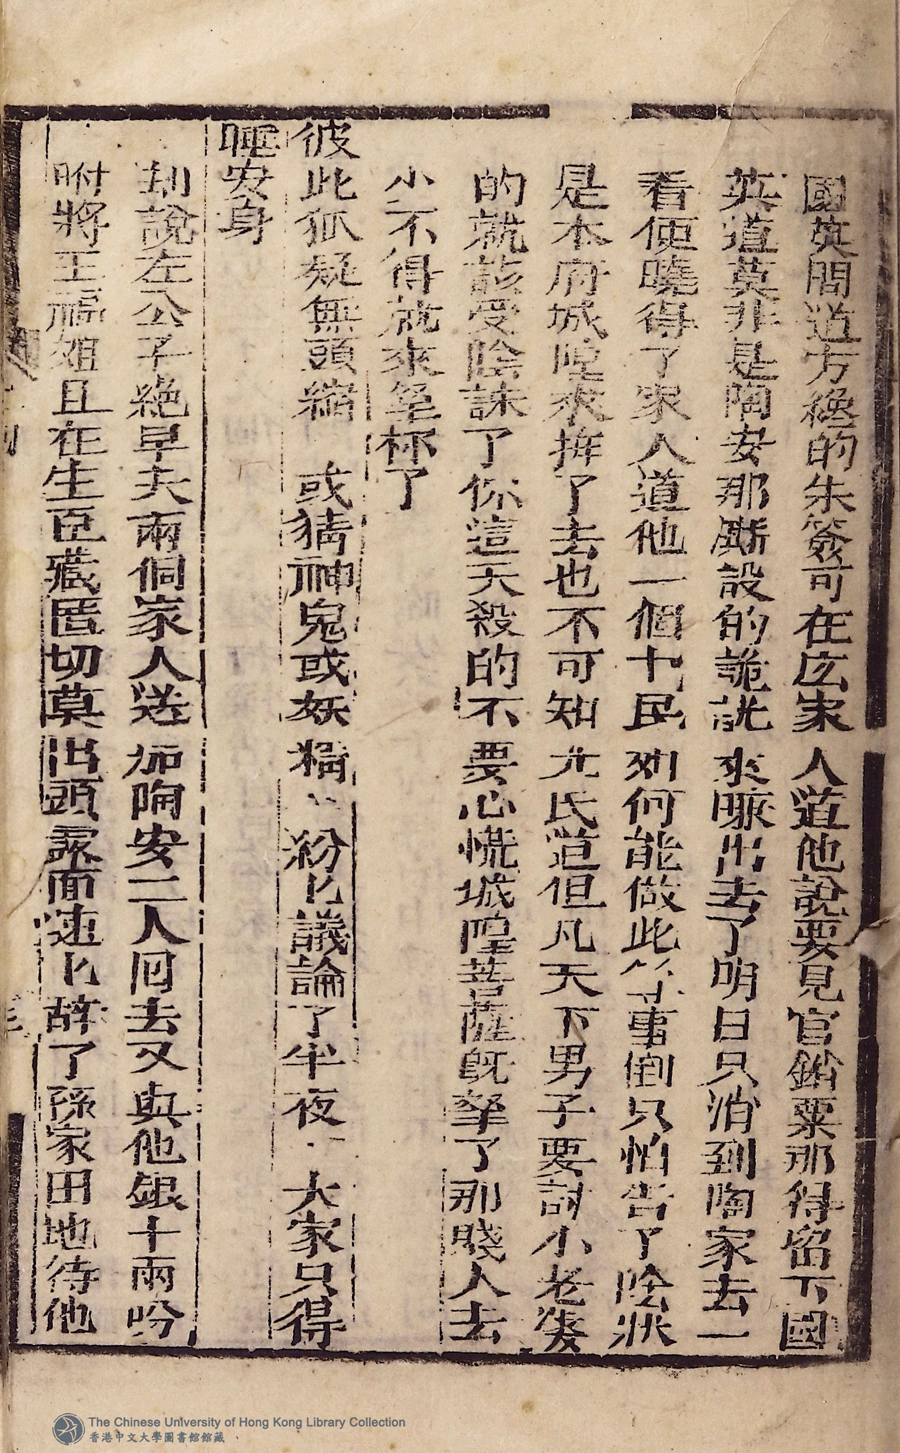 國英問道方纔的朱簽可在庅家人道他說要見官銷票那得留下國
英道莫非是陶安那厮設的詭訛來賺出去了明日只消到陶家去一
看便曉得了家人道他一個十民如何能做此等事倒只怕告了陰狀
是本府城隍來捽了去也不可知尤氏道但凡天下男子要討小老婆
的就該受陰誅了你這天殺的不要心慌城隍菩薩旣拏了那賤人去
少不得就來拿你了
彼此狐疑無頭緒 或猜神鬼或妖精 紛匕議論了半夜 大家只得
睡安身
刦說左公子絕早夫兩個家人送 陶安二人囘去又與他銀十兩吩
咐將王福姐且在生臣藏匿切莫出頭露面速匕辞了孫家田地待他
The Chinese University of Hong Kong Library Collection
香港中文大學圖書館館藏